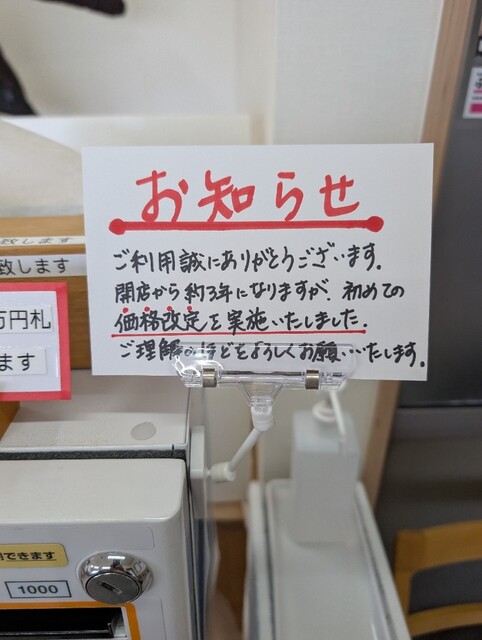 お知らせ
ご利用誠にありがとうございます。
開店から約3年になりますが、初めての
価格改定を実施いたしました。
ご理解のほどをよろしくお願いいたします。
致します
致します
万円札
ます
できます
1000